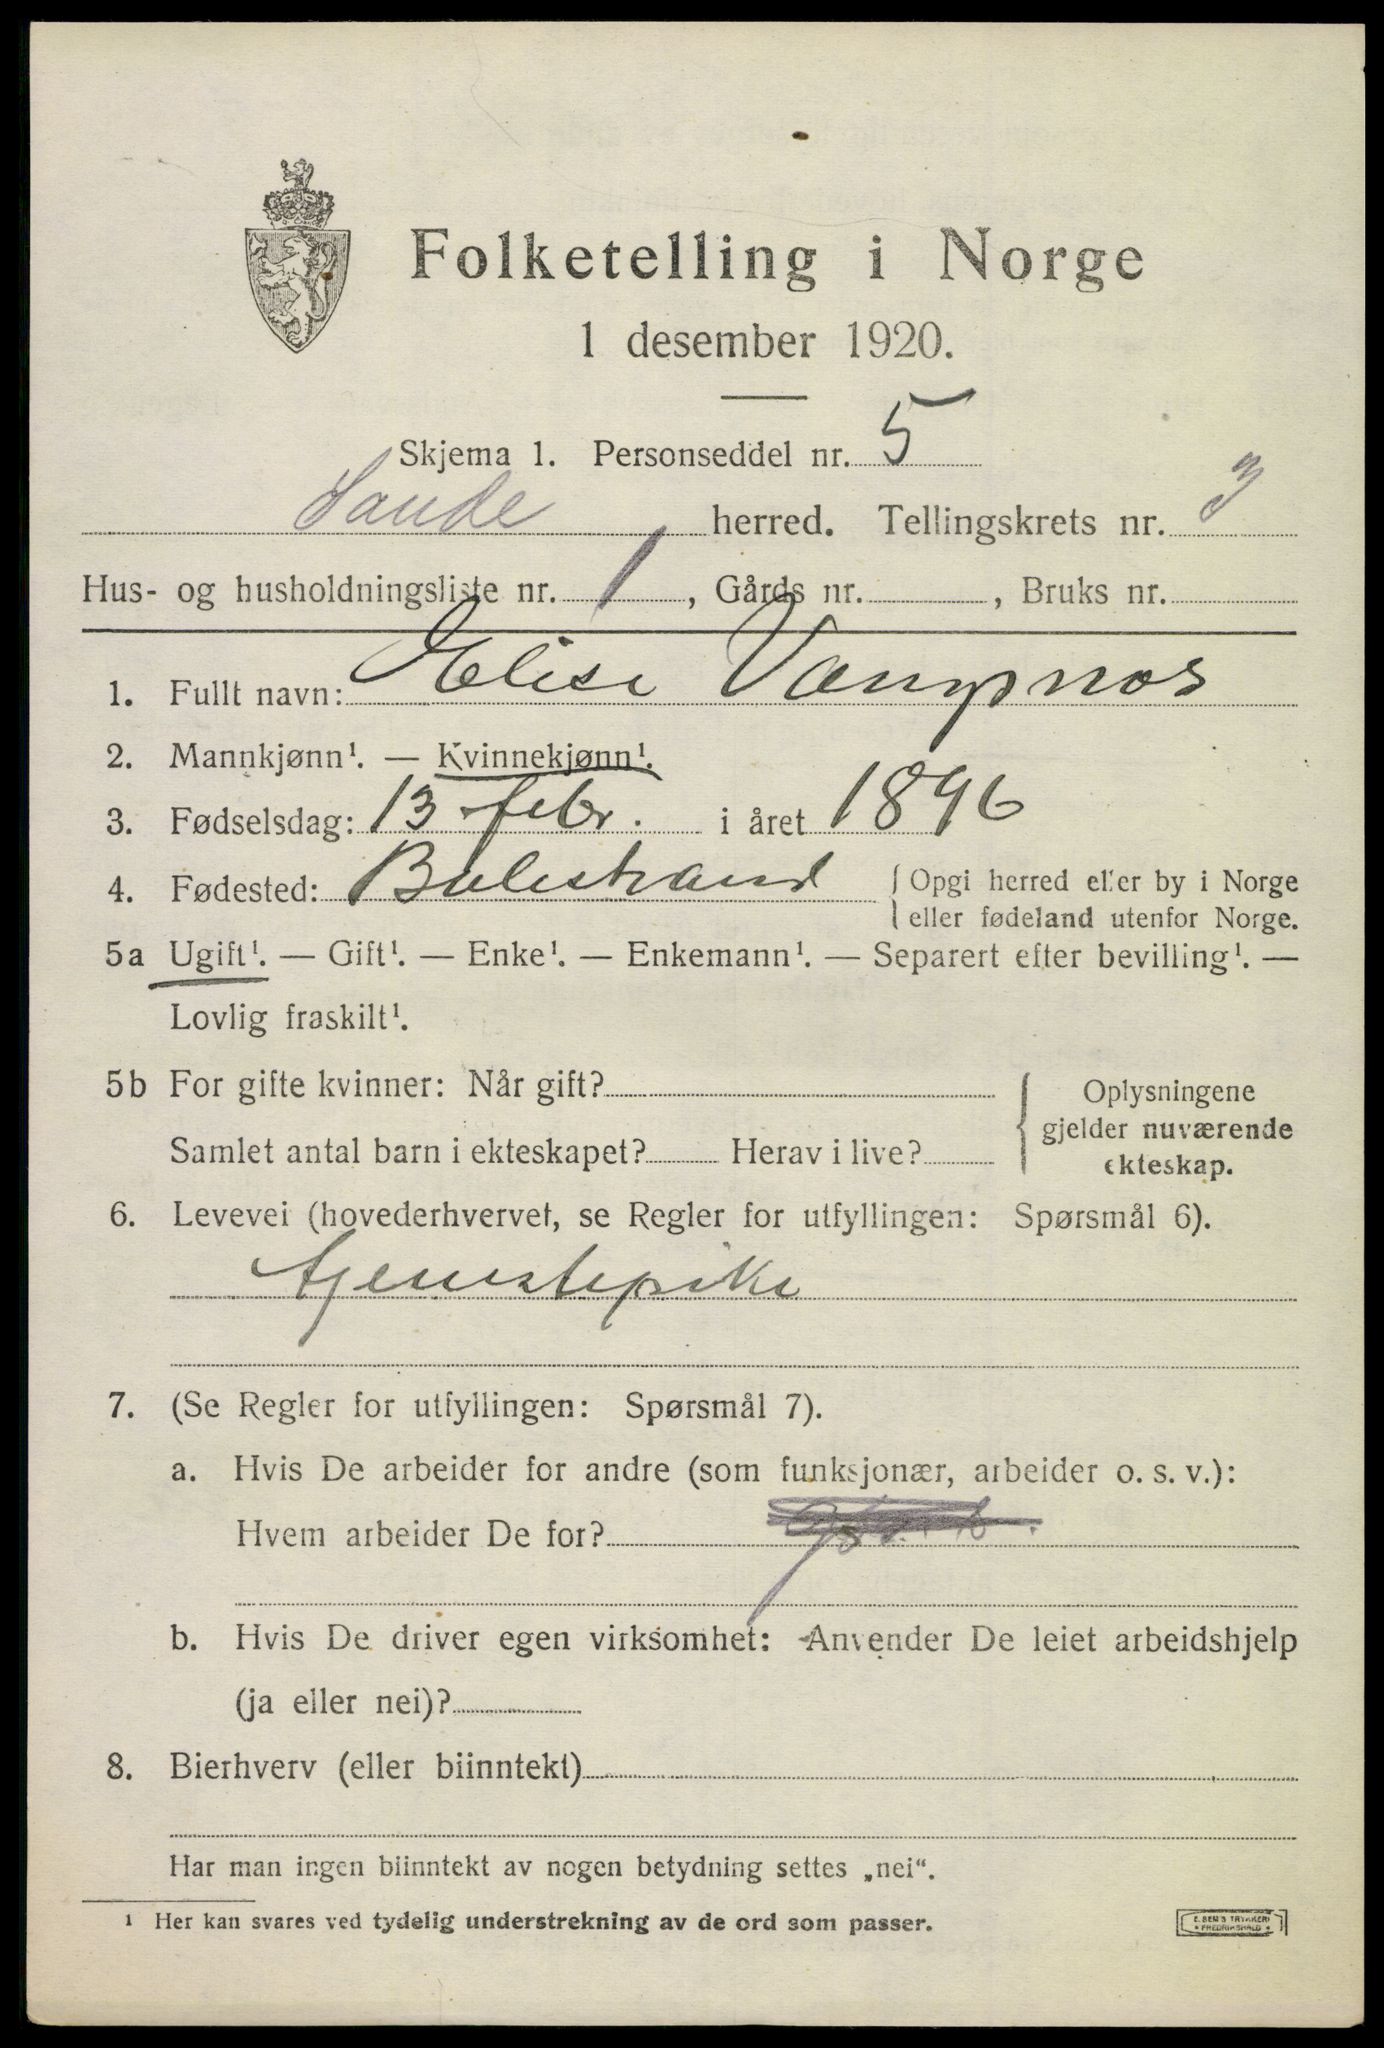 Folketelling i Norge
1 desember 1920.
Skjema 1. Personseddel nr. 5
Sande herred. Tellingskrets nr. 3
Hus- og husholdningsliste nr. 1, Gårds nr. , Bruks nr.
1. Fullt navn: Elise
2. Mannkjønn¹. — Kvinnekjønn¹.
3. Fødselsdag: 13 febr. i året 1896
4. Fødested: Balestrand { Opgi herred eller by i Norge
eller fødeland utenfor Norge.
5a Ugift¹. — Gift¹. — Enke¹. — Enkemann¹. — Separert efter bevilling¹. —
Lovlig fraskilt¹.
5b For gifte kvinner: Når gift? { Oplysningene
gjelder nuværende
Samlet antal barn i ekteskapet? Herav i live?
ekteskap.
6. Levevei (hovederhvervet, se Regler for utfyllingen: Spørsmål 6).
Tjenestepike
7. (Se Regler for utfyllingen: Spørsmål 7).
a. Hvis De arbeider for andre (som funksjonær, arbeider o. s. v.):
Hvem arbeider De for?
b. Hvis De driver egen virksomhet: Anvender De leiet arbeidshjelp
(ja eller nei)?
8. Bierhverv (eller biinntekt)
Har man ingen biinntekt av nogen betydning settes „nei“.
¹ Her kan svares ved tydelig understrekning av de ord som passer.
E. SEM'S TRYKKERI
• FREDRIKSHALD •